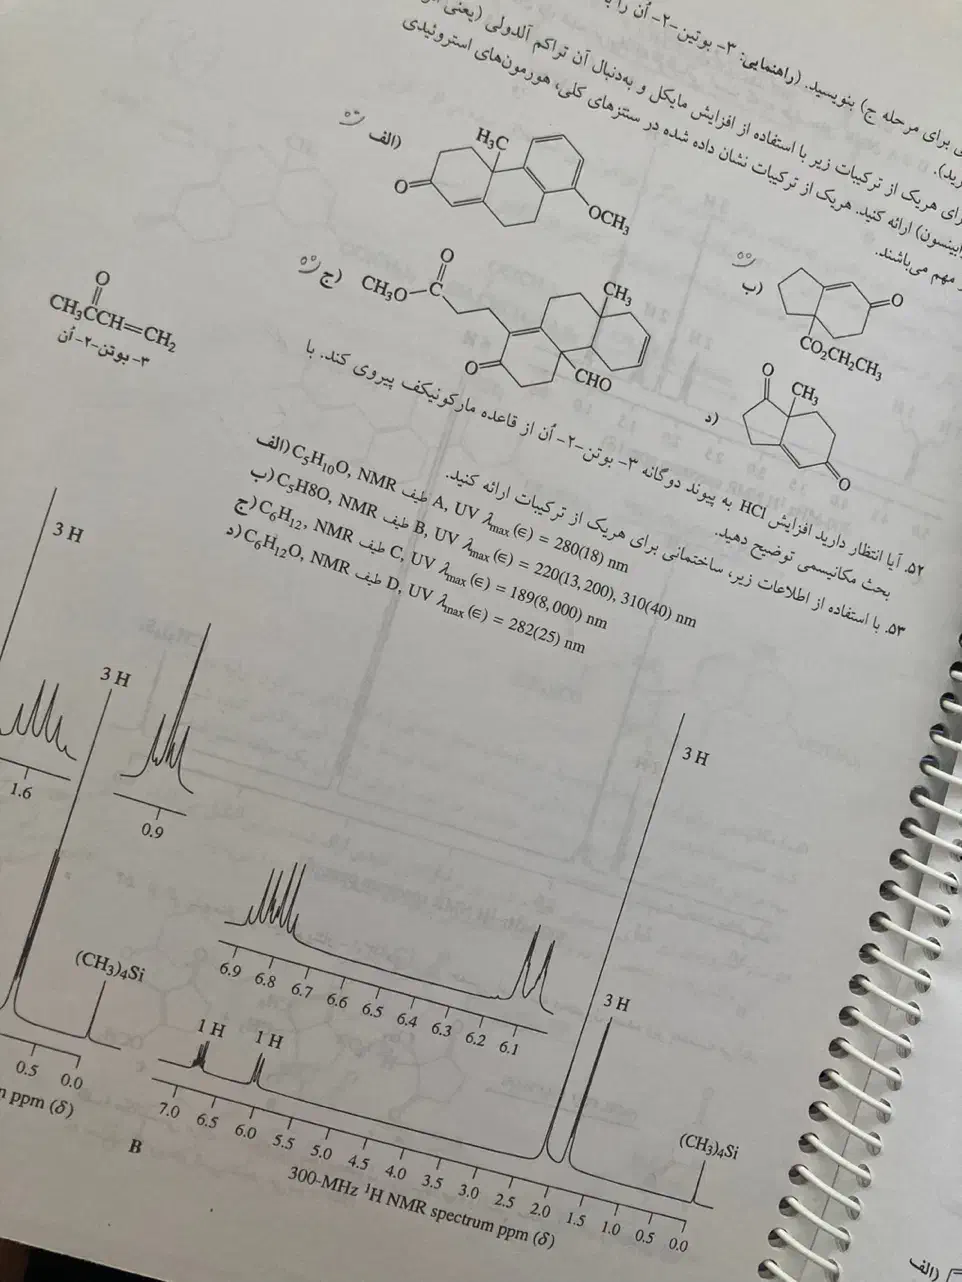 ی برای مرحله ج) بنویسید. (راهنمایی: ۳- بوتین-۲- اُن را
رید).
رای هریک از ترکیبات زیر با استفاده از افزایش مایکل و به‌دنبال آن تراکم آلدولی (یعنی
ابینسون) ارائه کنید. هریک از ترکیبات نشان داده شده در سنتزهای کلی، هورمون‌های استروئیدی
مهم می‌باشند.
الف)
H₃C
O
OCH₃
ب)
O
CO₂CH₂CH₃
ج)
O
CH₃O—C
CH₃
O
CHO
د)
O
CH₃
O
O
CH₃CCH=CH₂
۳- بوتن-۲- اُن
۵۲. آیا انتظار دارید افزایش HCl به پیوند دوگانه ۳- بوتن-۲- اُن از قاعده مارکونیکف پیروی کند. با
بحث مکانیسمی توضیح دهید.
۵۳. با استفاده از اطلاعات زیر، ساختمانی برای هریک از ترکیبات ارائه کنید.
الف) C₅H₁₀O, NMR طیف A, UV λmax (ϵ) = 280(18) nm
ب) C₅H8O, NMR طیف B, UV λmax (ϵ) = 220(13,200), 310(40) nm
ج) C₆H₁₂, NMR طیف C, UV λmax (ϵ) = 189(8,000) nm
د) C₆H₁₂O, NMR طیف D, UV λmax (ϵ) = 282(25) nm
3 H
3 H
1.6
0.9
(CH₃)₄Si
0.5 0.0
n ppm (δ)
3 H
6.9 6.8 6.7 6.6 6.5 6.4 6.3 6.2 6.1
3 H
1 H 1 H
(CH₃)₄Si
7.0 6.5 6.0 5.5 5.0 4.5 4.0 3.5 3.0 2.5 2.0 1.5 1.0 0.5 0.0
B
300-MHz ¹H NMR spectrum ppm (δ)
الف)